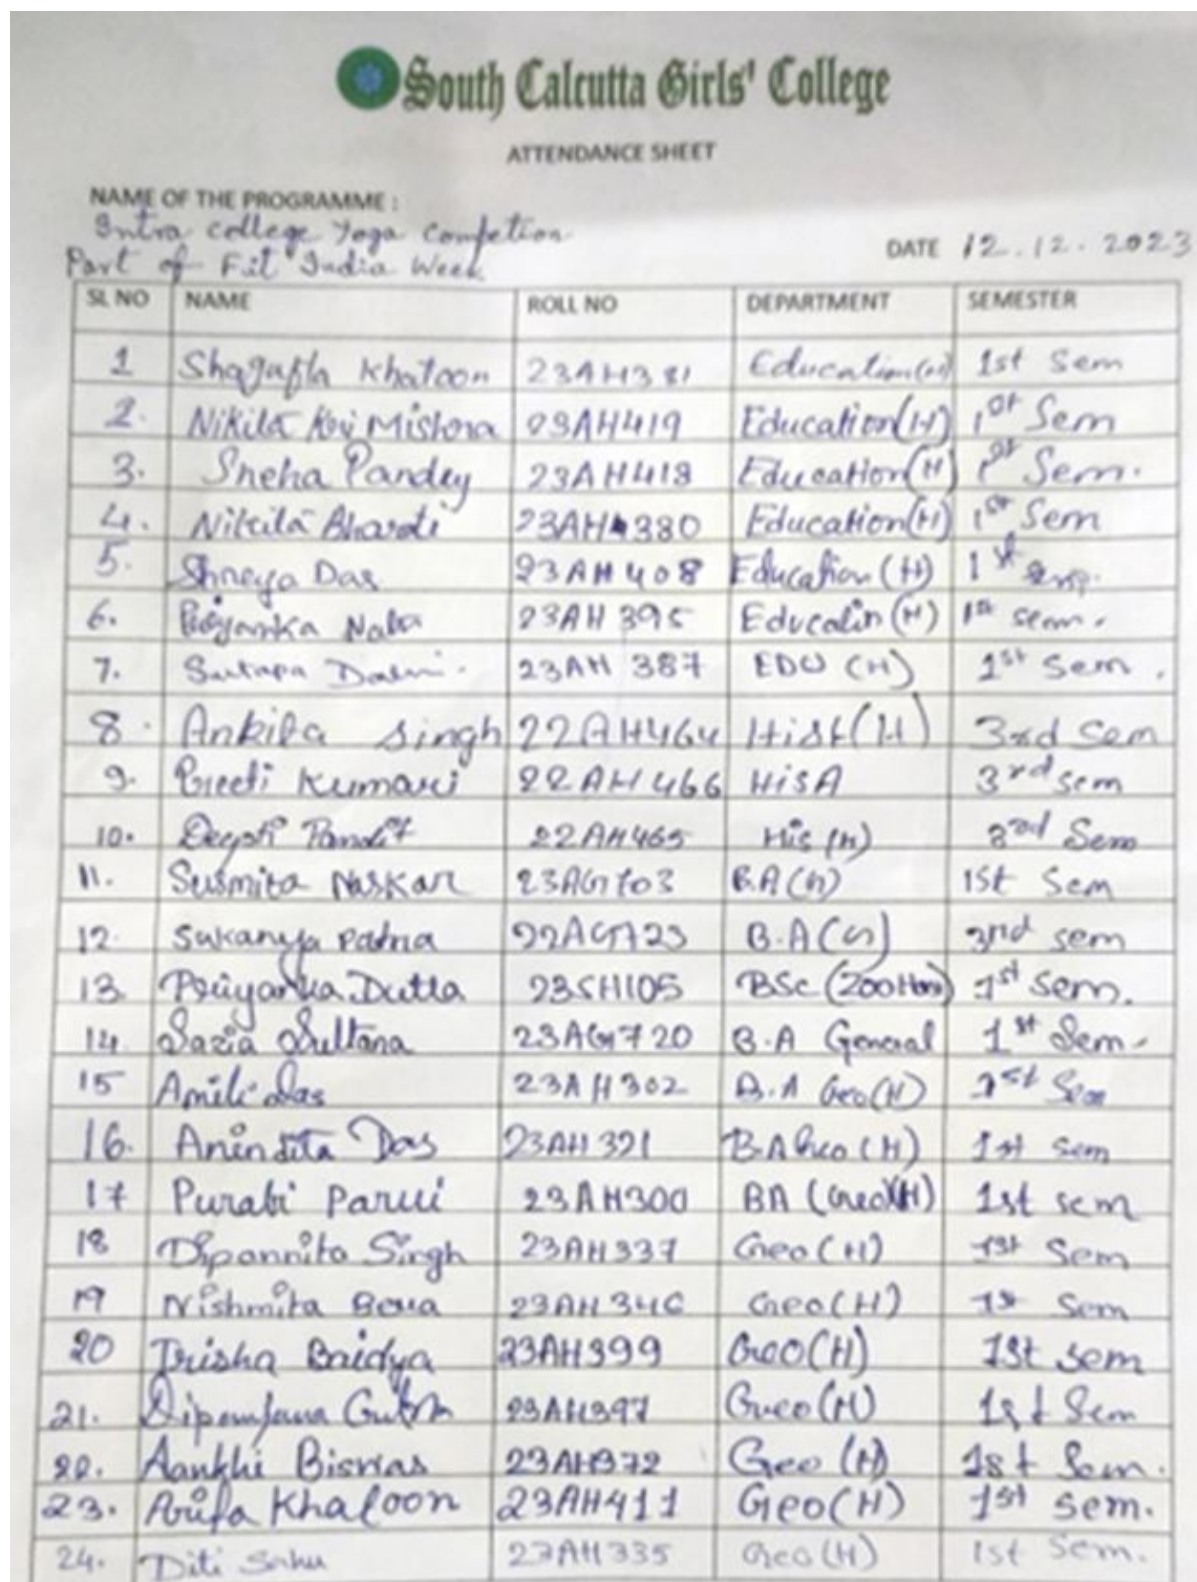 South Calcutta Girls' College
ATTENDANCE SHEET
NAME OF THE PROGRAMME :
Intra college Yoga Competion
DATE 12.12.2023
Part of Fit India Week
SL NO NAME ROLL NO DEPARTMENT SEMESTER
1 Shagufta Khatoon 23AH381 Education(H) 1st Sem
2. Nikita Kri Mishra 23AH419 Education(H) 1st Sem
3. Sneha Pandey 23AH418 Education(H) 1st Sem.
4. Nikita Bharti 23AH380 Education(H) 1st Sem
5. Shreya Das 23AH408 Education(H) 1st Sem.
6. Priyanka Naba 23AH395 Educatin(H) 1st sem.
7. Sutapa 23AH 387 EDU (H) 1st Sem.
8. Ankita Singh 22AH464 Hist(H) 3rd Sem
9. Preeti Kumari 22AH466 HISA 3rd sem
10. Deepti Pandit 22AH465 His (H) 3rd Sem
11. Susmita Naskar 23AG703 B.A(G) 1st Sem
12. Sukanya Patna 22AG723 B.A(G) 3rd sem
13. Priyanka Dutta 23SH105 BSc (ZOO Hons) 1st Sem.
14. Sazia Sultana 23AG720 B.A General 1st Sem.
15 Amili Das 23AH302 B.A Geo(H) 1st Sem
16. Anindita Das 23AH321 B.A Geo (H) 1st Sem
17 Purabi Parui 23AH300 BA (Geo)(H) 1st sem
18 Dipannita Singh 23AH337 Geo(H) 1st Sem
19 Nishmita Bera 23AH346 Geo(H) 1st Sem
20 Trisha Baidya 23AH399 Geo(H) 1st sem
21. Dipanjana 23AH397 Geo(H) 1st Sem
22. Aankhi Biswas 23AH372 Geo (H) 1st Sem.
23. Arifa Khatoon 23AH411 Geo(H) 1st sem.
24. Diti Sahu 23AH335 Geo(H) 1st Sem.